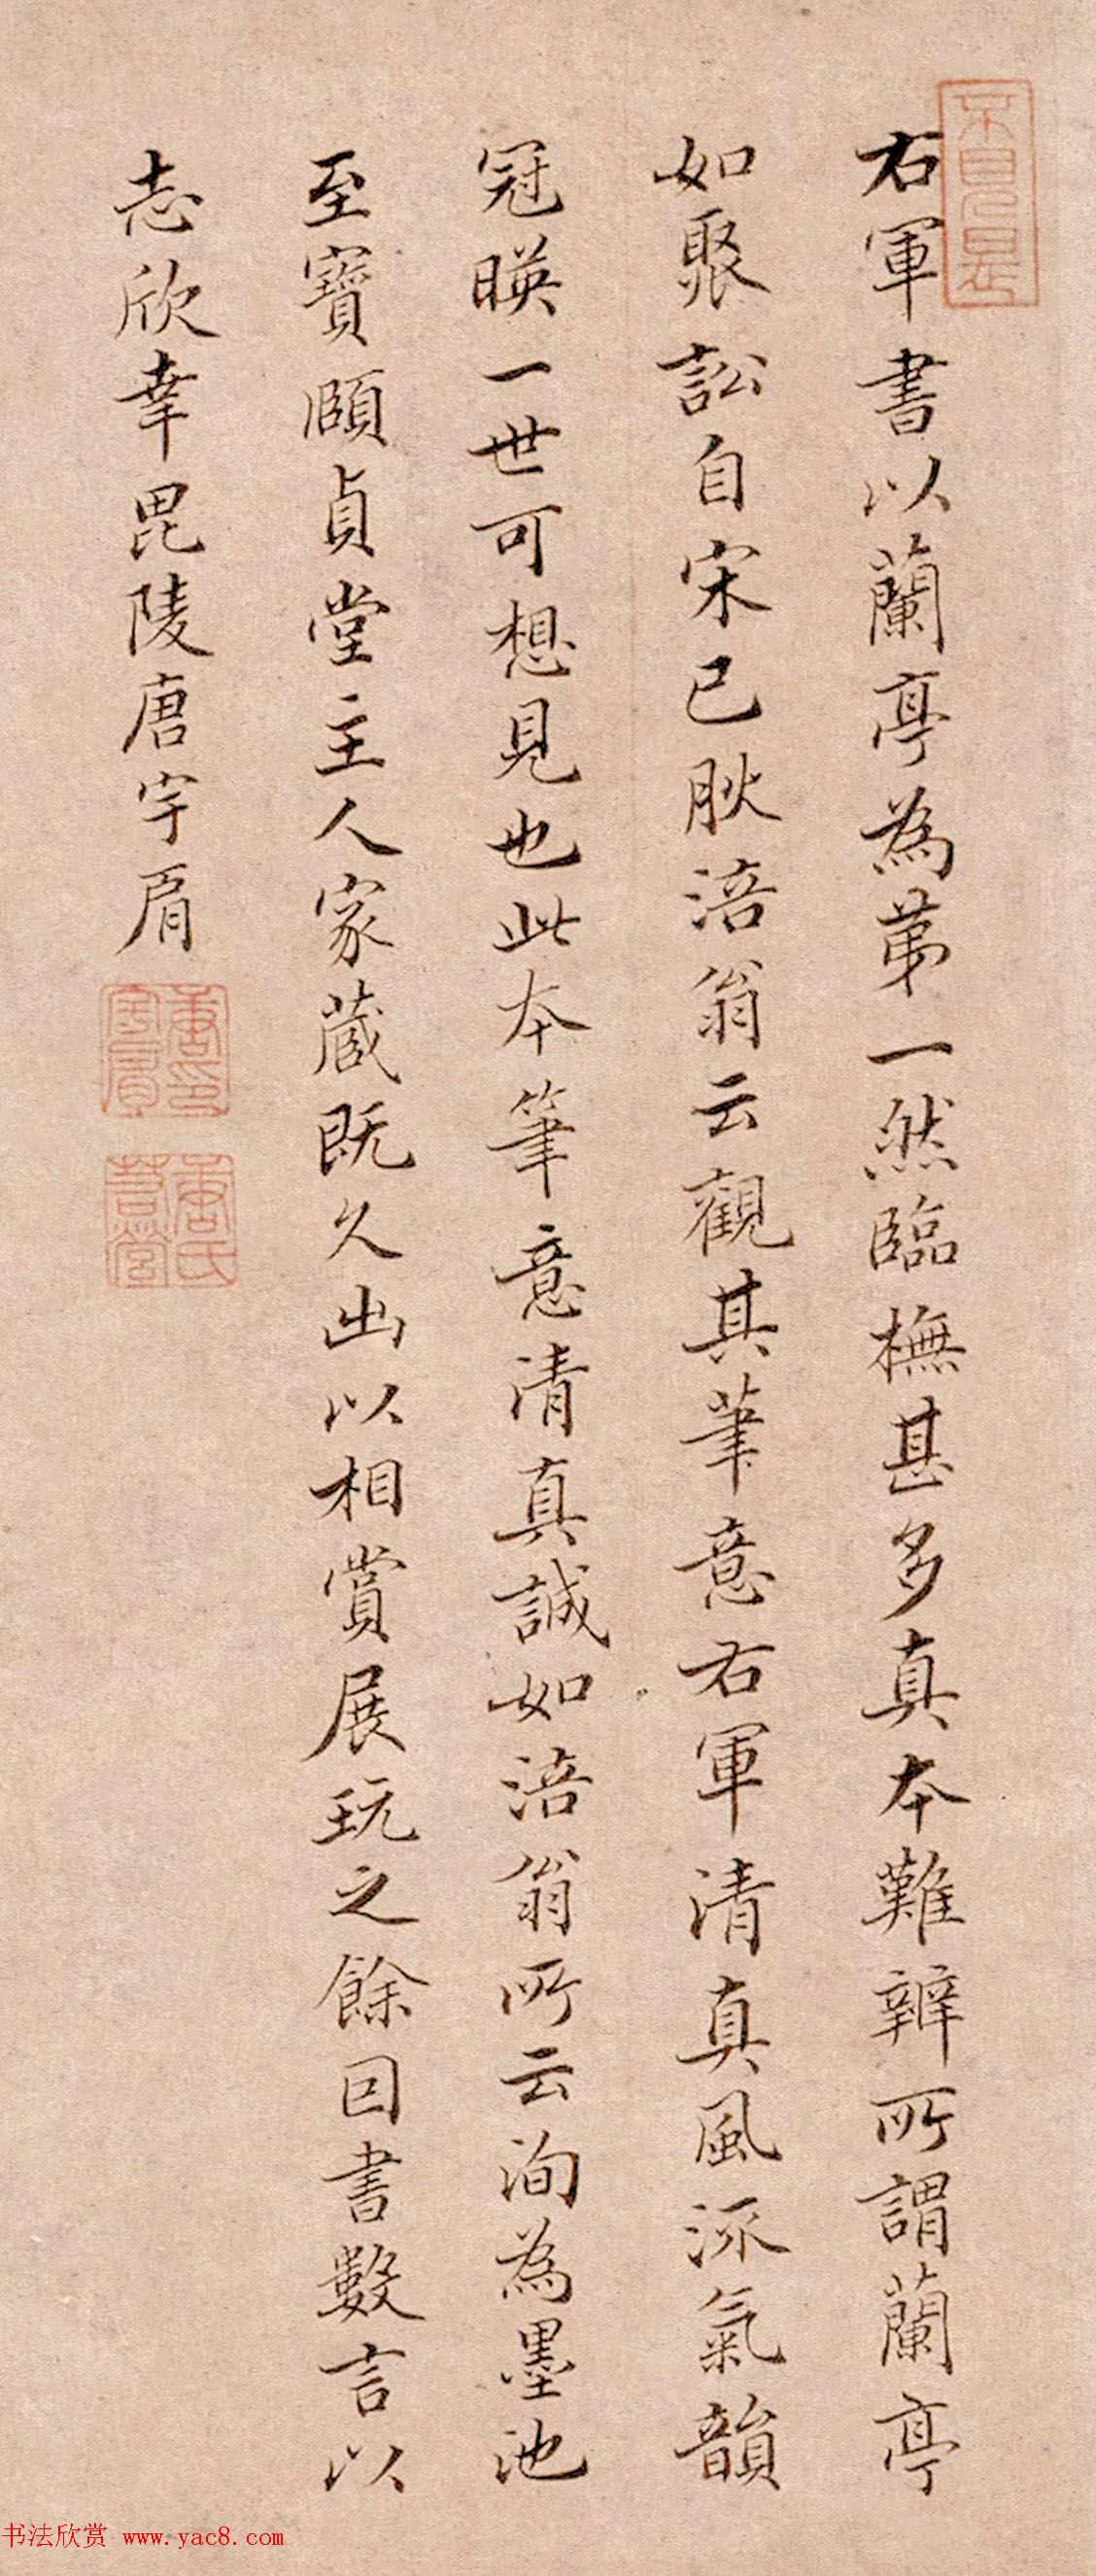 右軍書以蘭亭為第一然臨橅甚多真本難辨所謂蘭亭
如聚訟自宋已肰涪翁云觀其筆意右軍清真風流氣韻
冠暎一世可想見也此本筆意清真誠如涪翁所云洵為墨池
至寶頤貞堂主人家藏既久出以相賞展玩之餘回書數言以
志欣幸毘陵唐宇肩
唐印宇肩
唐氏營
书法欣赏 www.yac8.com